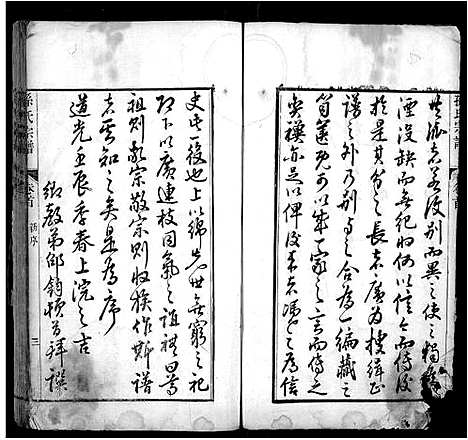 共派者若復別而異之使之獨
湮沒缺而無紀將何以信今而傳後
於是其分之長者廣為搜緝正
譜之外乃別與之合為一編藏之
笥篋既可以成一家之言而傳之
奕禩亦足以俾後來歸之為信
史也一役也上以綿先世無窮之祀
下以廣連枝同氣之誼禮曰尊
祖則敬宗敬宗則收族作斯譜
者其知之矣是為序
道光壬辰季春上浣之吉
鄉教弟邵鈞頓首拜譔
孫氏宗譜
卷首
新序
三
孫氏宗譜
卷首